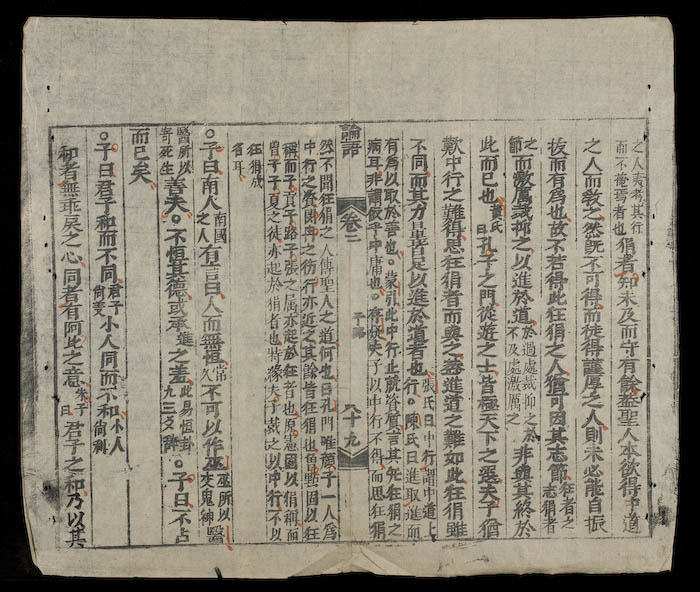 之人夷考其行而不掩焉者也狷者知未及而守有餘蓋聖人本欲得中道
之人而敎之然旣不可得而徒得謹厚之人則未必能自振
拔而有爲也故不若得此狂狷之人猶可因其志節狂者之志狷者
之節而激厲裁抑之以進於道於過處裁抑之於不及處激厲之非與其終於
此而已也黃氏曰孔子之門從遊之士皆極天下之選夫子猶
歎中行之難得思狂狷者而與之盖進道之難如此狂狷雖
不同而其力量皆足以進於道者也張氏曰中行謂中道上行。陳氏曰進取進而
有爲以取於善也。蒙引此中行止就資質言其狂狷之
病耳非謂便乎中庸也。存疑夫子以中行不得而思狂狷
論語 卷二 子路 八十九
然不聞狂狷之人傳聖人之道何也曰孔門唯顏子一人爲
中行之資閔冉之行亦近之其餘皆狂狷也曾點固以狂
稱而子貢子路子張之屬亦起於狂者也原憲固以狷稱而
曾子子夏之徒亦起於狷者也特緣夫子裁之以中行不以
狂狷成名耳
。子曰南人南國之人有言曰人而無恒常久不可以作巫巫所以交鬼神醫
醫所以寄死生善夫。不恒其德或承進之羞此易恒卦九三爻辭。子曰不占
而已矣
。子曰君子和而不同君子尙義小人同而不和小人尙利
和者無乖戾之心同者有阿比之意朱子曰君子之和乃以其